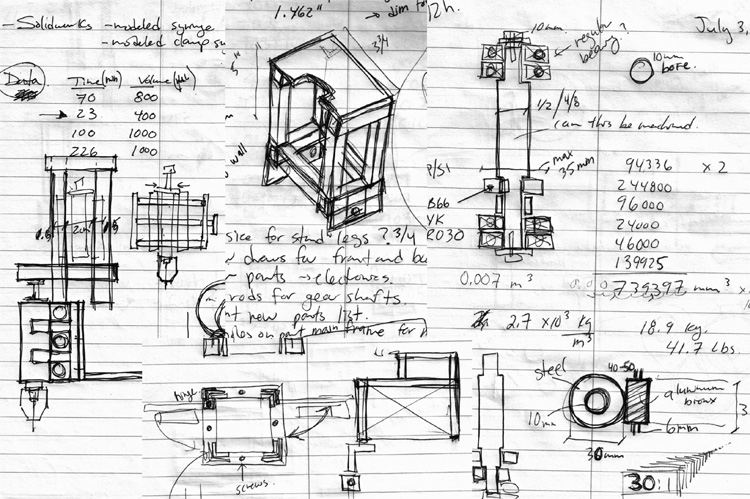 - Solidworks - modeled syringe
- modeled clamp su
Data
Time (min) Volume
70 800
23 400
100 1000
226 1000
1.462"
→ dim fo
3 3/4
wall
12h.
July 3,
10mm
regular bearing?
10mm bore.
1/2 / 4/8
can this be machined.
max 35mm
P/S1
B66
YK
R030
94336 x 2
244800
96000
24000
46000
139925
739397 mm³
0.007 m³
2.7 x10³ kg/m³
18.9 kg.
41.7 lbs.
size for stand legs ? 3/4
draws for front and ba
parts → electronics.
rods for gear shafts.
nt new parts list.
oles on part main frame for
hinge
screws
steel
40-50
aluminum bronx
10mm
6mm
30mm
3
30:1